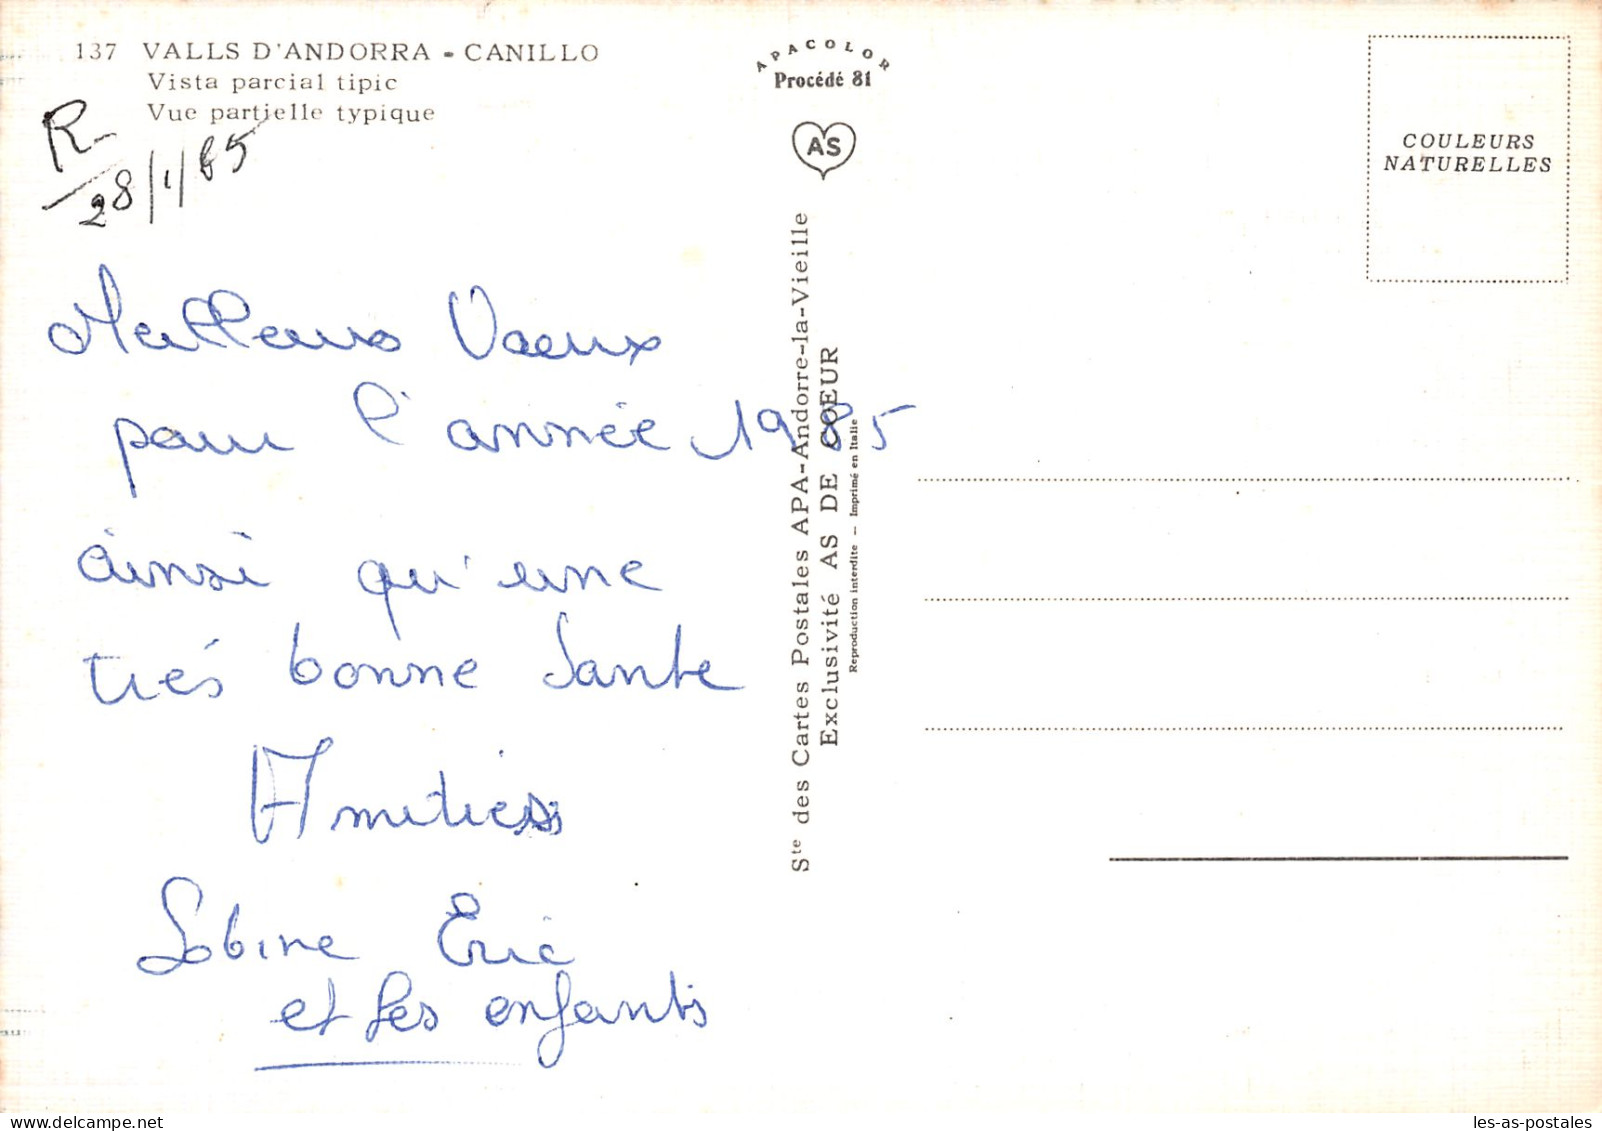 137 VALLS D'ANDORRA - CANILLO
Vista parcial tipic
Vue partielle typique
R
28/1/85
Meilleurs Voeux
pour l'année 1985
ainsi qu'une
trés bonne Sante
Amitiess
Sabine Eric
et les enfants
APACOLOR
Procédé 81
AS
Ste des Cartes Postales APA-Andorre-la-Vieille
Exclusivité AS DE COEUR
Reproduction interdite - Imprimé en Italie
COULEURS
NATURELLES
les-as-postales